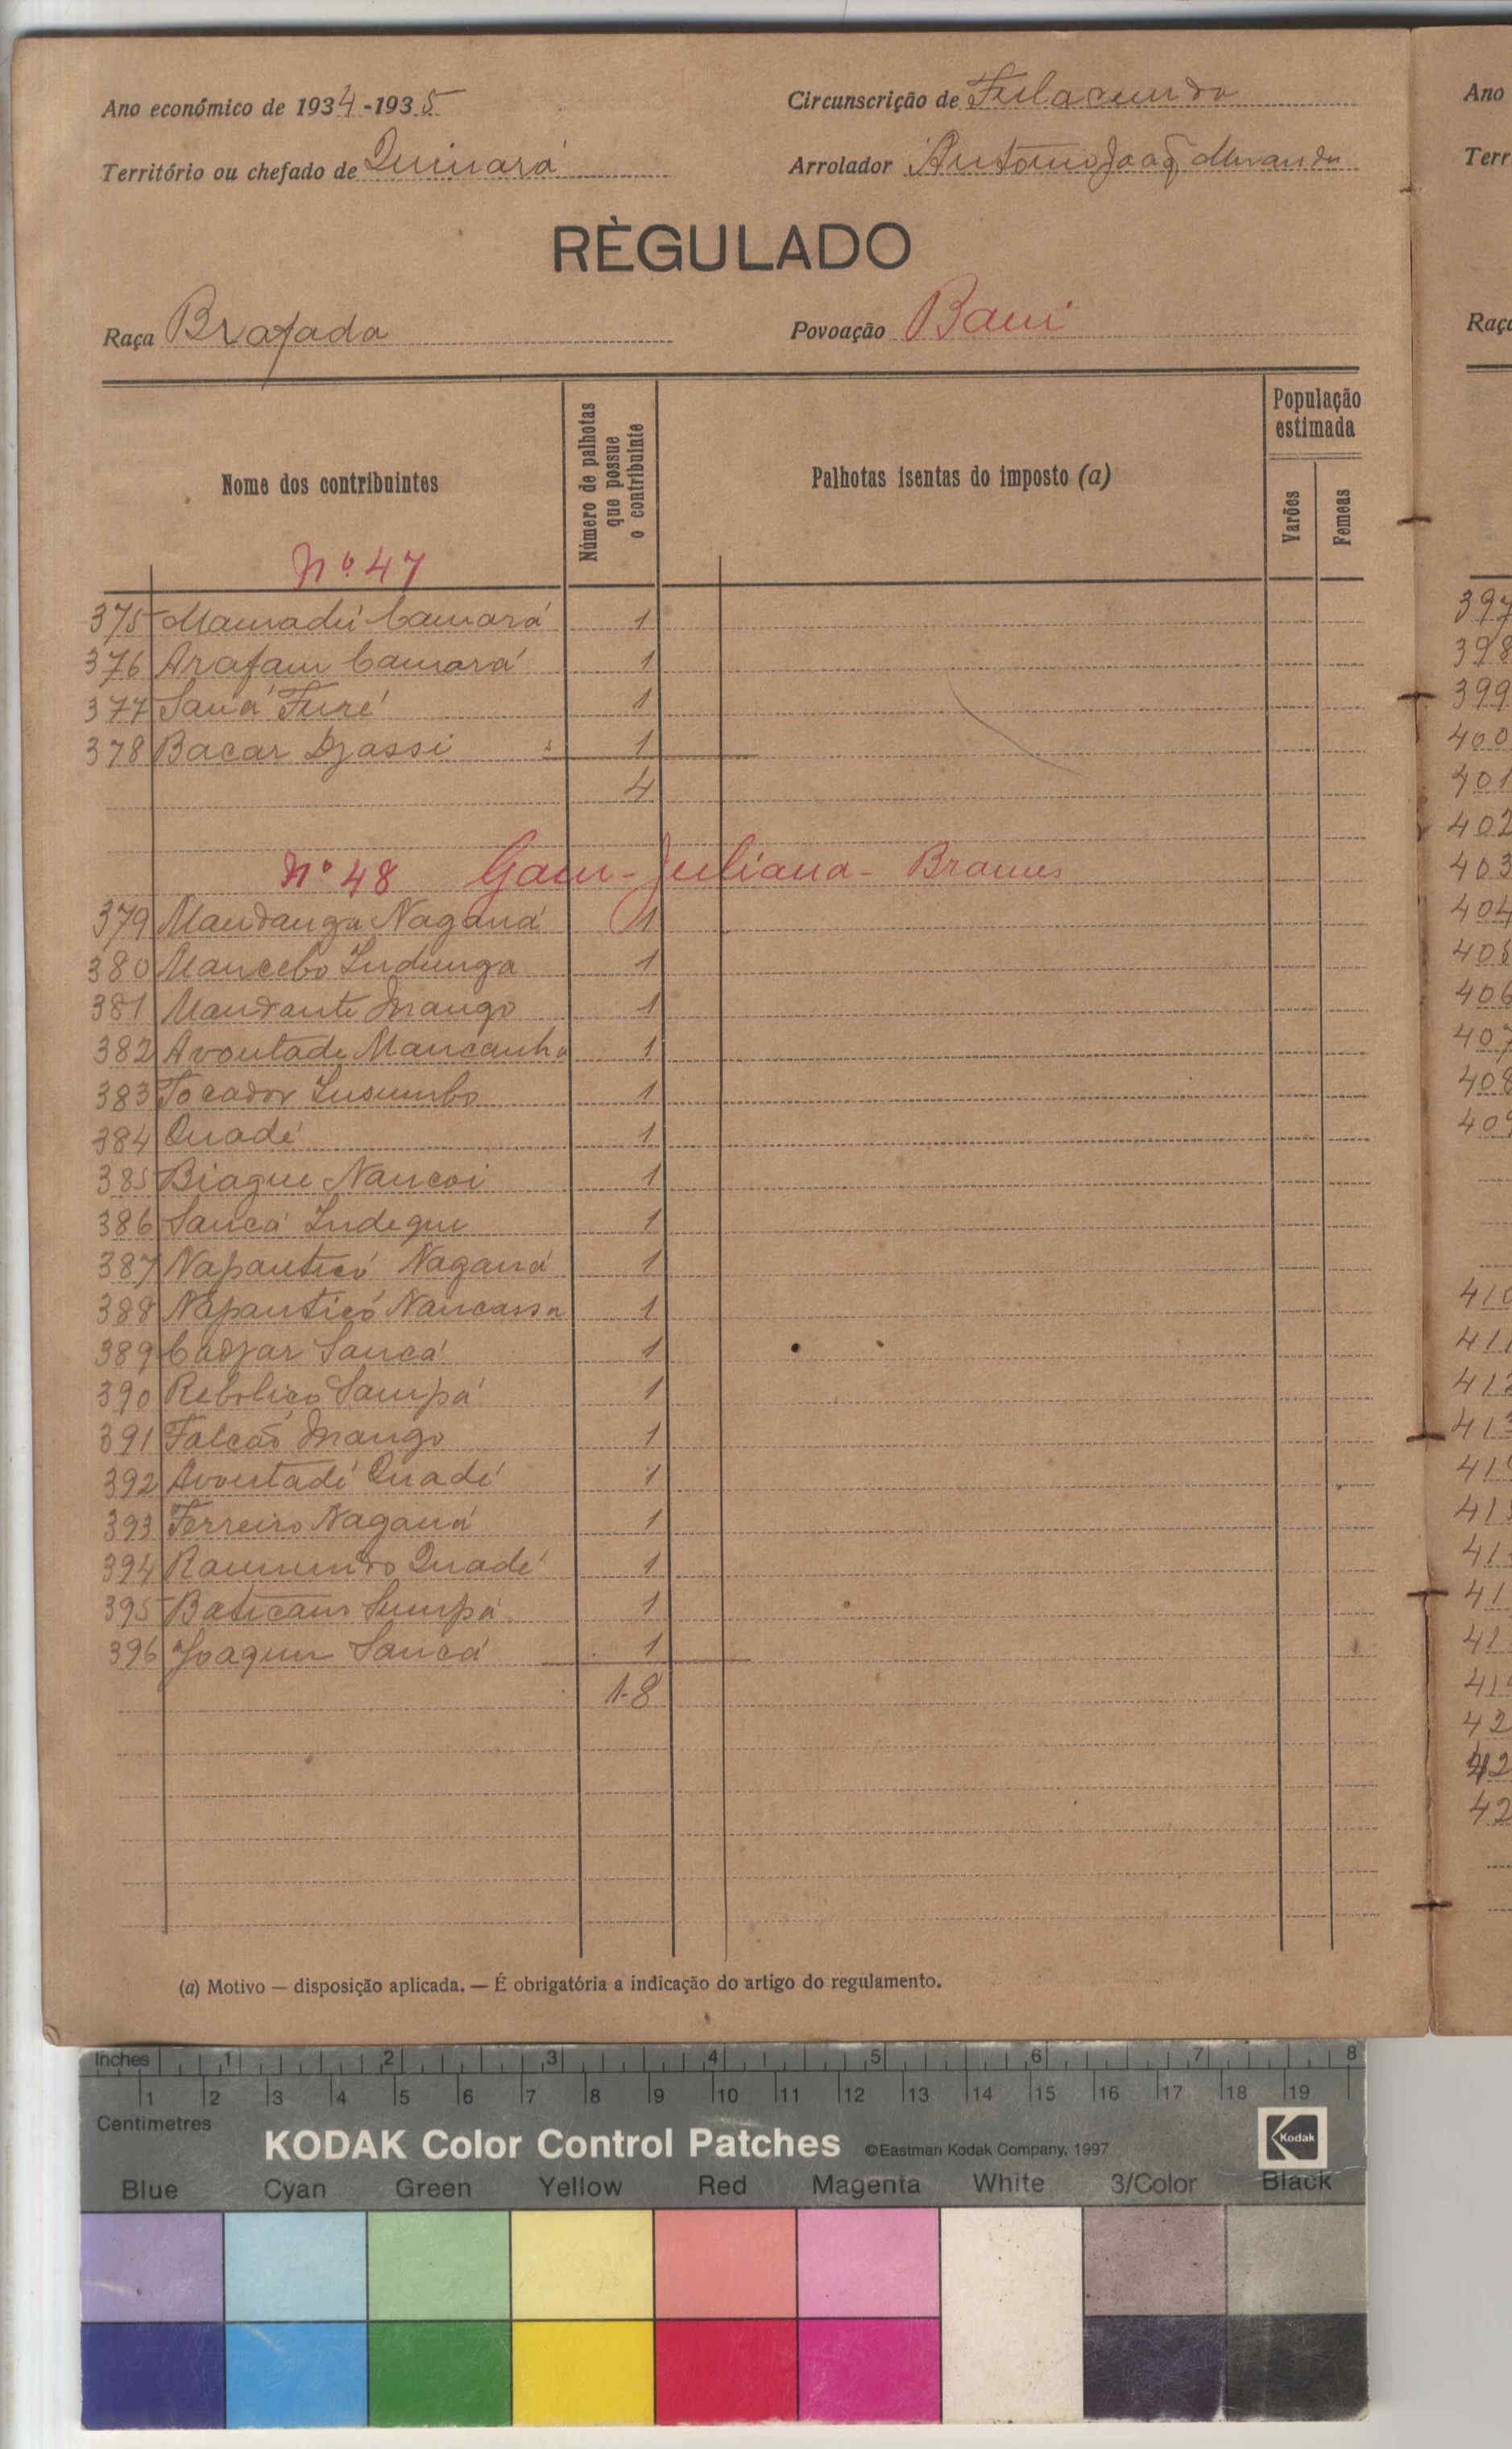 Ano económico de 1934-1935
Circunscrição de Fulacunda
Território ou chefado de Quinará
Arrolador António João Miranda
RÈGULADO
Raça Brafada
Povoação Bani
Nome dos contribuintes
Número de palhotas que possue o contribuinte
Palhotas isentas do imposto (a)
População estimada
Varões
Femeas
Nº 47
375 Mamadú Camará 1
376 Arafam Camará 1
377 Saná Turé 1
378 Bacar Djassi 1
4
Nº 48 Gam-Juliana - Brames
379 Mandanga Naganá 1
380 Mancebo Indunga 1
381 Mandante Mango 1
382 Avoutade Mancanha 1
383 Tocador Insumbo 1
384 Quadé 1
385 Biague Nancoi 1
386 Sanca Indeque 1
387 Napanticó Naganá 1
388 Napanticó Nancassa 1
389 Cadjar Sancá 1
390 Reboliço Sampá 1
391 Falcão Mango 1
392 Avoutadé Quadé 1
393 Ferreiro Naganá 1
394 Raimundo Quadé 1
395 Baticam Sumpá 1
396 Joaquim Sancá 1
18
(a) Motivo — disposição aplicada. — É obrigatória a indicação do artigo do regulamento.
Ano
Terr
Raça
397
398
399
400
401
402
403
404
405
406
407
408
409
410
411
412
413
Inches 1 2 3 4 5 6 7 8
1 2 3 4 5 6 7 8 9 10 11 12 13 14 15 16 17 18 19
Centimetres
KODAK Color Control Patches ©Eastman Kodak Company, 1997 Kodak
Blue Cyan Green Yellow Red Magenta White 3/Color Black